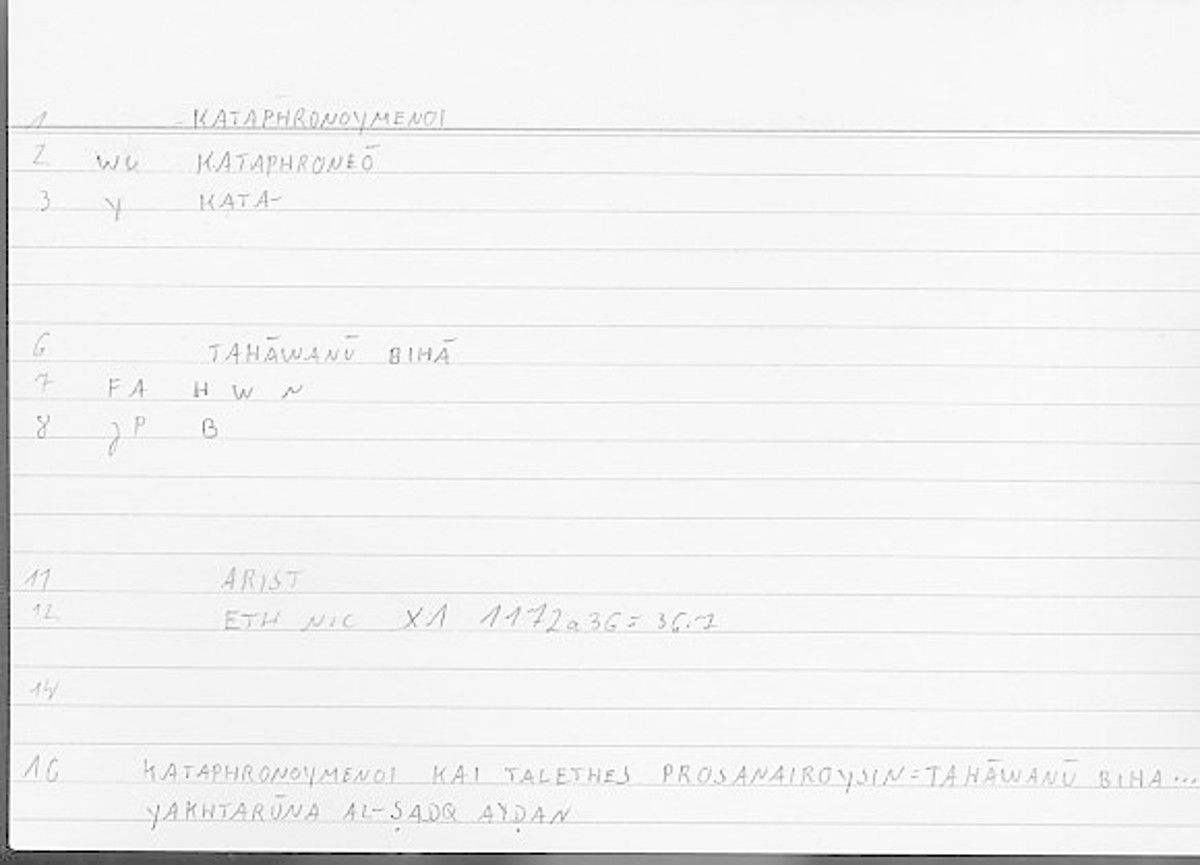 1 KATAPHRONOYMENOI
2 KATAPHRONEŌ
3 y KATA-
6 TAHĀWANŪ BIHĀ
7 FA H W N
8 P B
11 ARIST
12 ETH NIC X1 1172a36=
14
16 KATAPHRONOYMENOI KAI TALETHES PROSANAIROYSIN=TAHĀWANŪ BIHA...
YAKHTARŪNA AL-ṢADQ AYḌAN